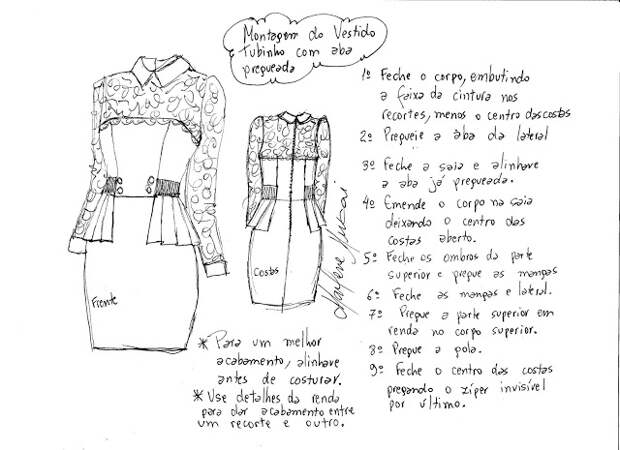 Montagem do Vestido
Tubinho com aba
pregueada
1º Feche o corpo, embutindo
a faixa da cintura nos
recortes, menos o centro das costas
2º Pregueie a aba da lateral
3º Feche a saia e alinhave
a aba já pregueada.
4º Emende o corpo na saia
deixando o centro das
costas aberto.
5º Feche os ombros da parte
superior e pregue as mangas
6º Feche as mangas e lateral.
7º Pregue a parte superior em
renda no corpo superior.
8º Pregue a gola.
9º Feche o centro das costas
pregando o zíper invisível
por último.
Frente
Costas
Marlene Mukai
* Para um melhor
acabamento, alinhave
antes de costurar.
* Use detalhes da renda
para dar acabamento entre
um recorte e outro.